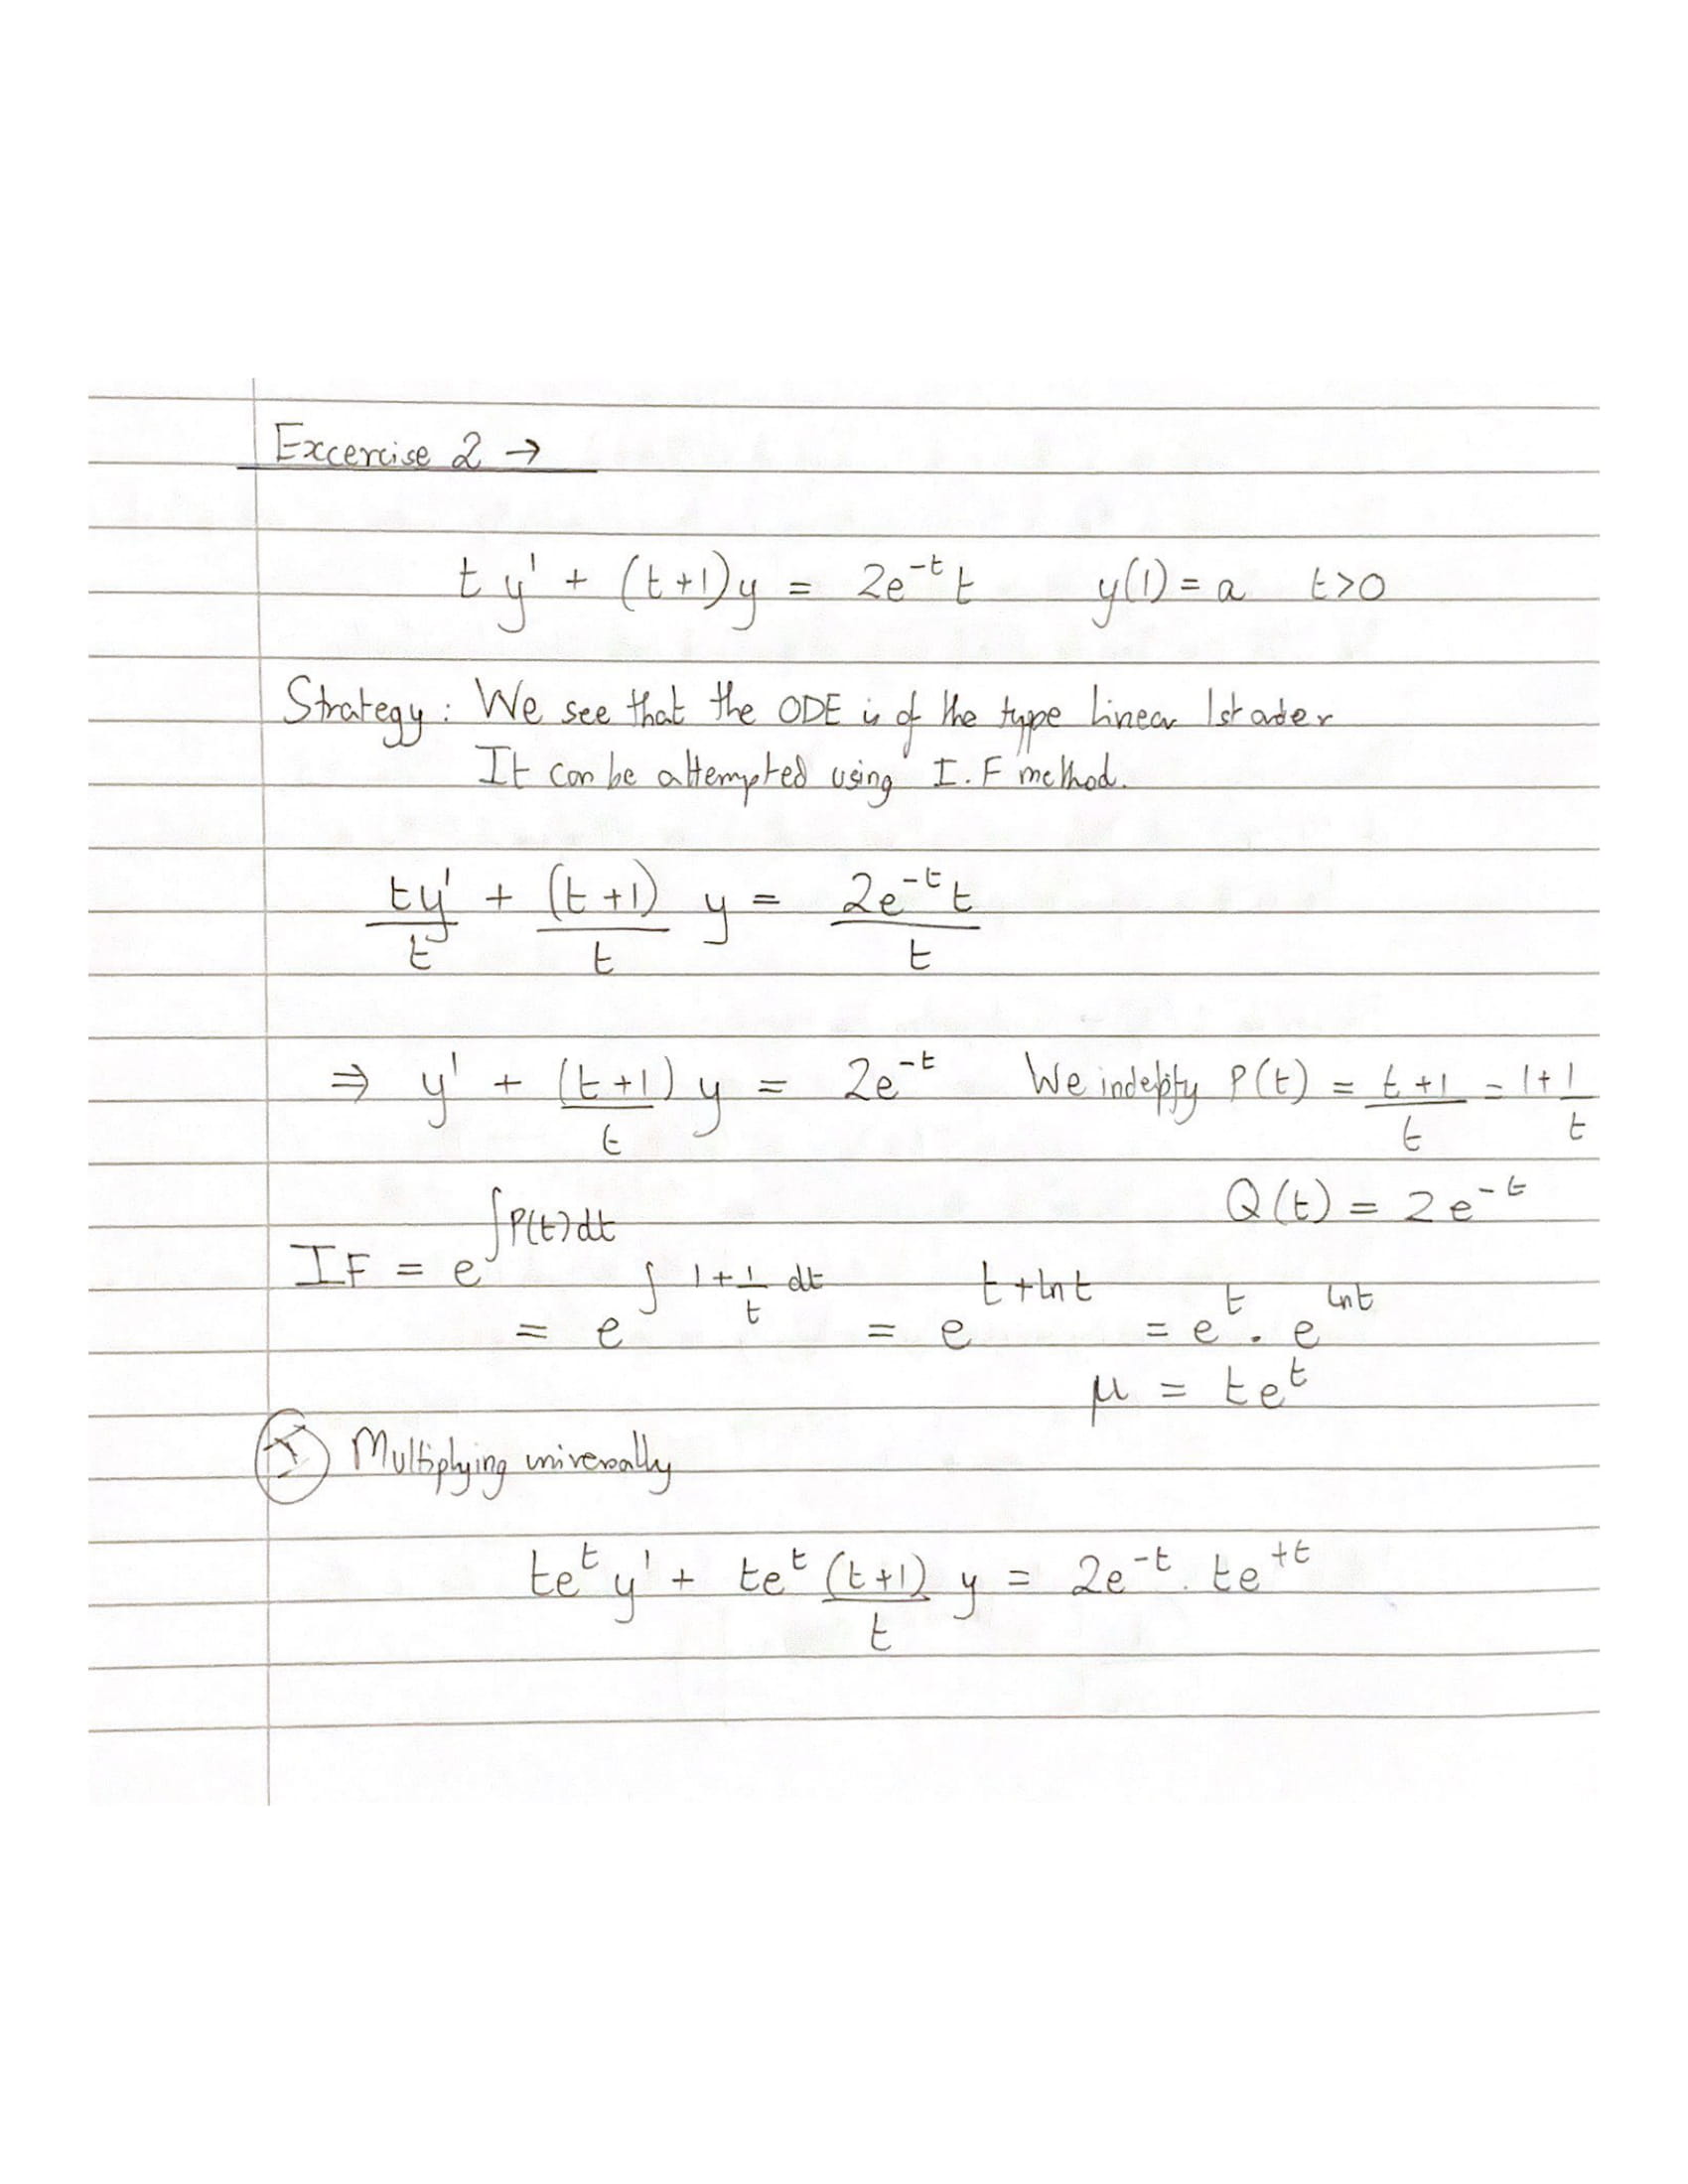 Excercise 2 →
t y' + (t+1)y = 2e^-t t y(1) = a t>0
Strategy : We see that the ODE is of the type Linear 1st order
It can be attempted using I.F method.
ty'/t + (t+1)/t y = 2e^-t t/t
⇒ y' + (t+1)/t y = 2e^-t We indetify P(t) = t+1/t = 1+1/t
Q(t) = 2e^-t
IF = e^∫P(t)dt
= e^∫ 1+1/t dt = e^t+lnt = e^t . e^lnt
μ = te^t
Multiplying universally
te^t y' + te^t (t+1)/t y = 2e^-t . te^+t